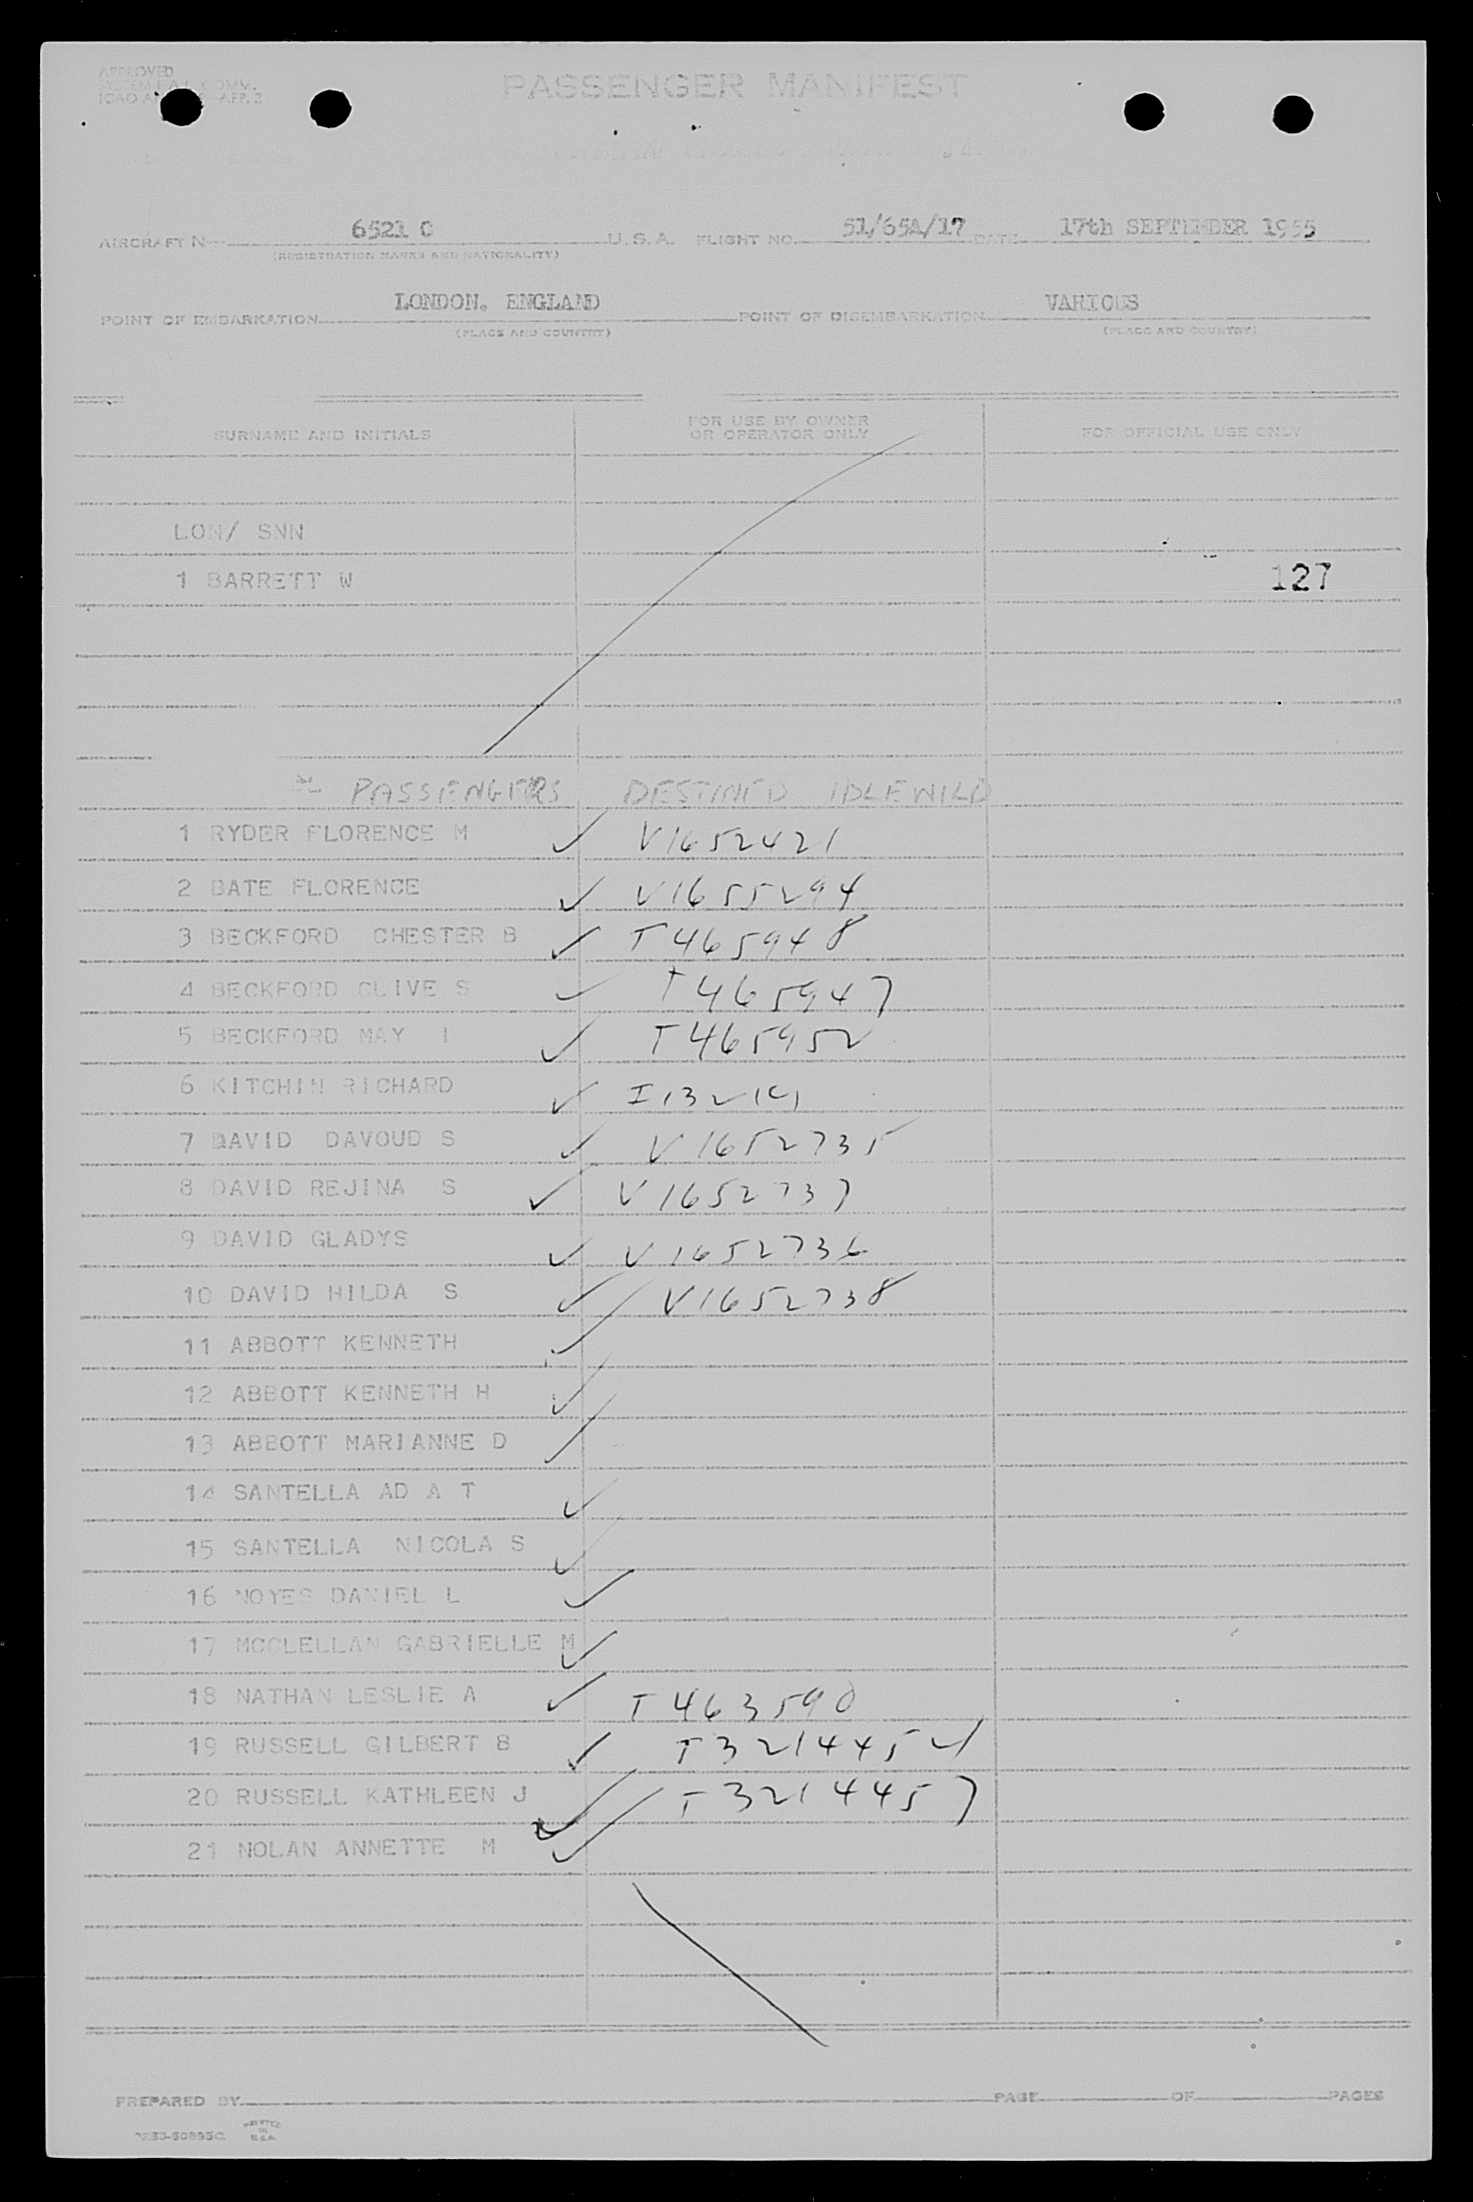 APPROVED
PASSENGER MANIFEST
AIRCRAFT N 6521 C U.S.A. FLIGHT NO. 51/65A/17 DATE 17th SEPTEMBER 1955
(REGISTRATION MARKS AND NATIONALITY)
POINT OF EMBARKATION LONDON. ENGLAND POINT OF DISEMBARKATION VARIOUS
(PLACE AND COUNTRY) (PLACE AND COUNTRY)
SURNAME AND INITIALS FOR USE BY OWNER OR OPERATOR ONLY FOR OFFICIAL USE ONLY
LON/ SNN
1 BARRETT W 127
PASSENGERS DESTINED IDLEWILD
1 RYDER FLORENCE M ✓ V1652421
2 BATE FLORENCE ✓ V1655294
3 BECKFORD CHESTER B ✓ T465948
4 BECKFORD CLIVE S ✓ T465947
5 BECKFORD MAY I ✓ T465952
6 KITCHIN RICHARD ✓
7 DAVID DAVOUD S ✓ V1652735
8 DAVID REJINA S ✓ V1652737
9 DAVID GLADYS ✓ V1652736
10 DAVID HILDA S ✓ V1652738
11 ABBOTT KENNETH ✓
12 ABBOTT KENNETH H ✓
13 ABBOTT MARIANNE D ✓
14 SANTELLA AD A T ✓
15 SANTELLA NICOLA S ✓
16 NOYES DANIEL L ✓
17 MCCLELLAN GABRIELLE M ✓
18 NATHAN LESLIE A ✓ T463590
19 RUSSELL GILBERT B ✓
20 RUSSELL KATHLEEN J ✓ T3214457
21 NOLAN ANNETTE M ✓
PREPARED BY PAGE OF PAGES